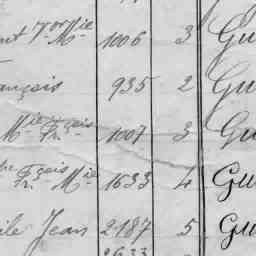 Mie 1006 3 Gu
ançois 935 2 Gu
Mie Fr. çois 1007 3 Gu
Fr. çois Mie 1633 4 Gu
ile Jean 2187 5 Gu